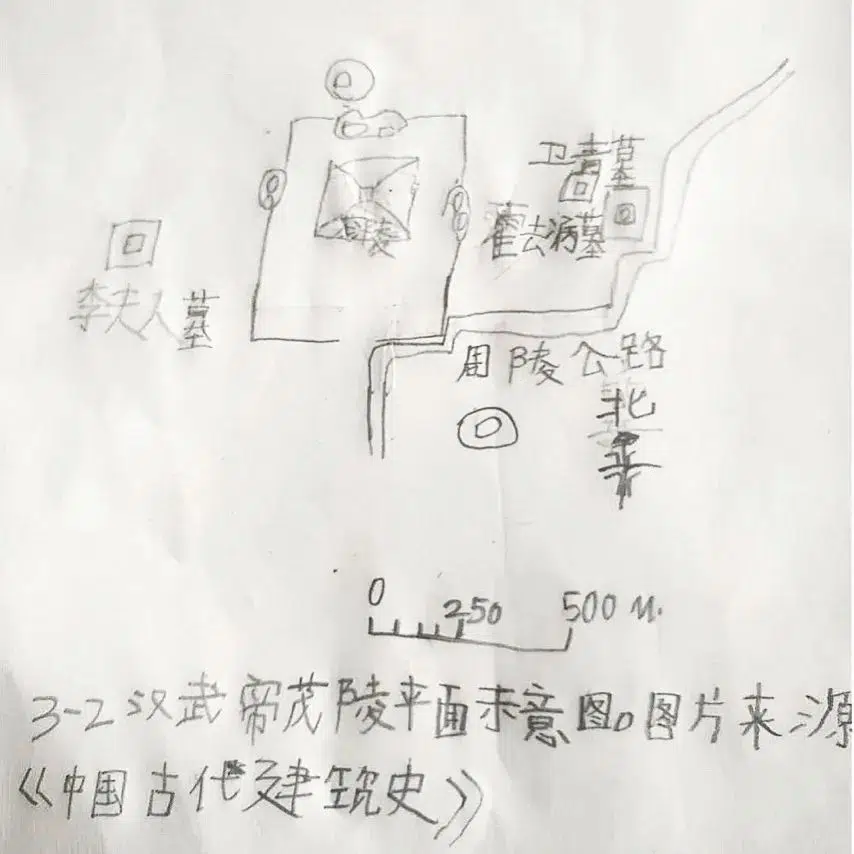 卫青墓
霍去病墓
李夫人墓
周陵公路
北
0 250 500 M.
3-2 汉武帝茂陵平面示意图。图片来源
《中国古代建筑史》